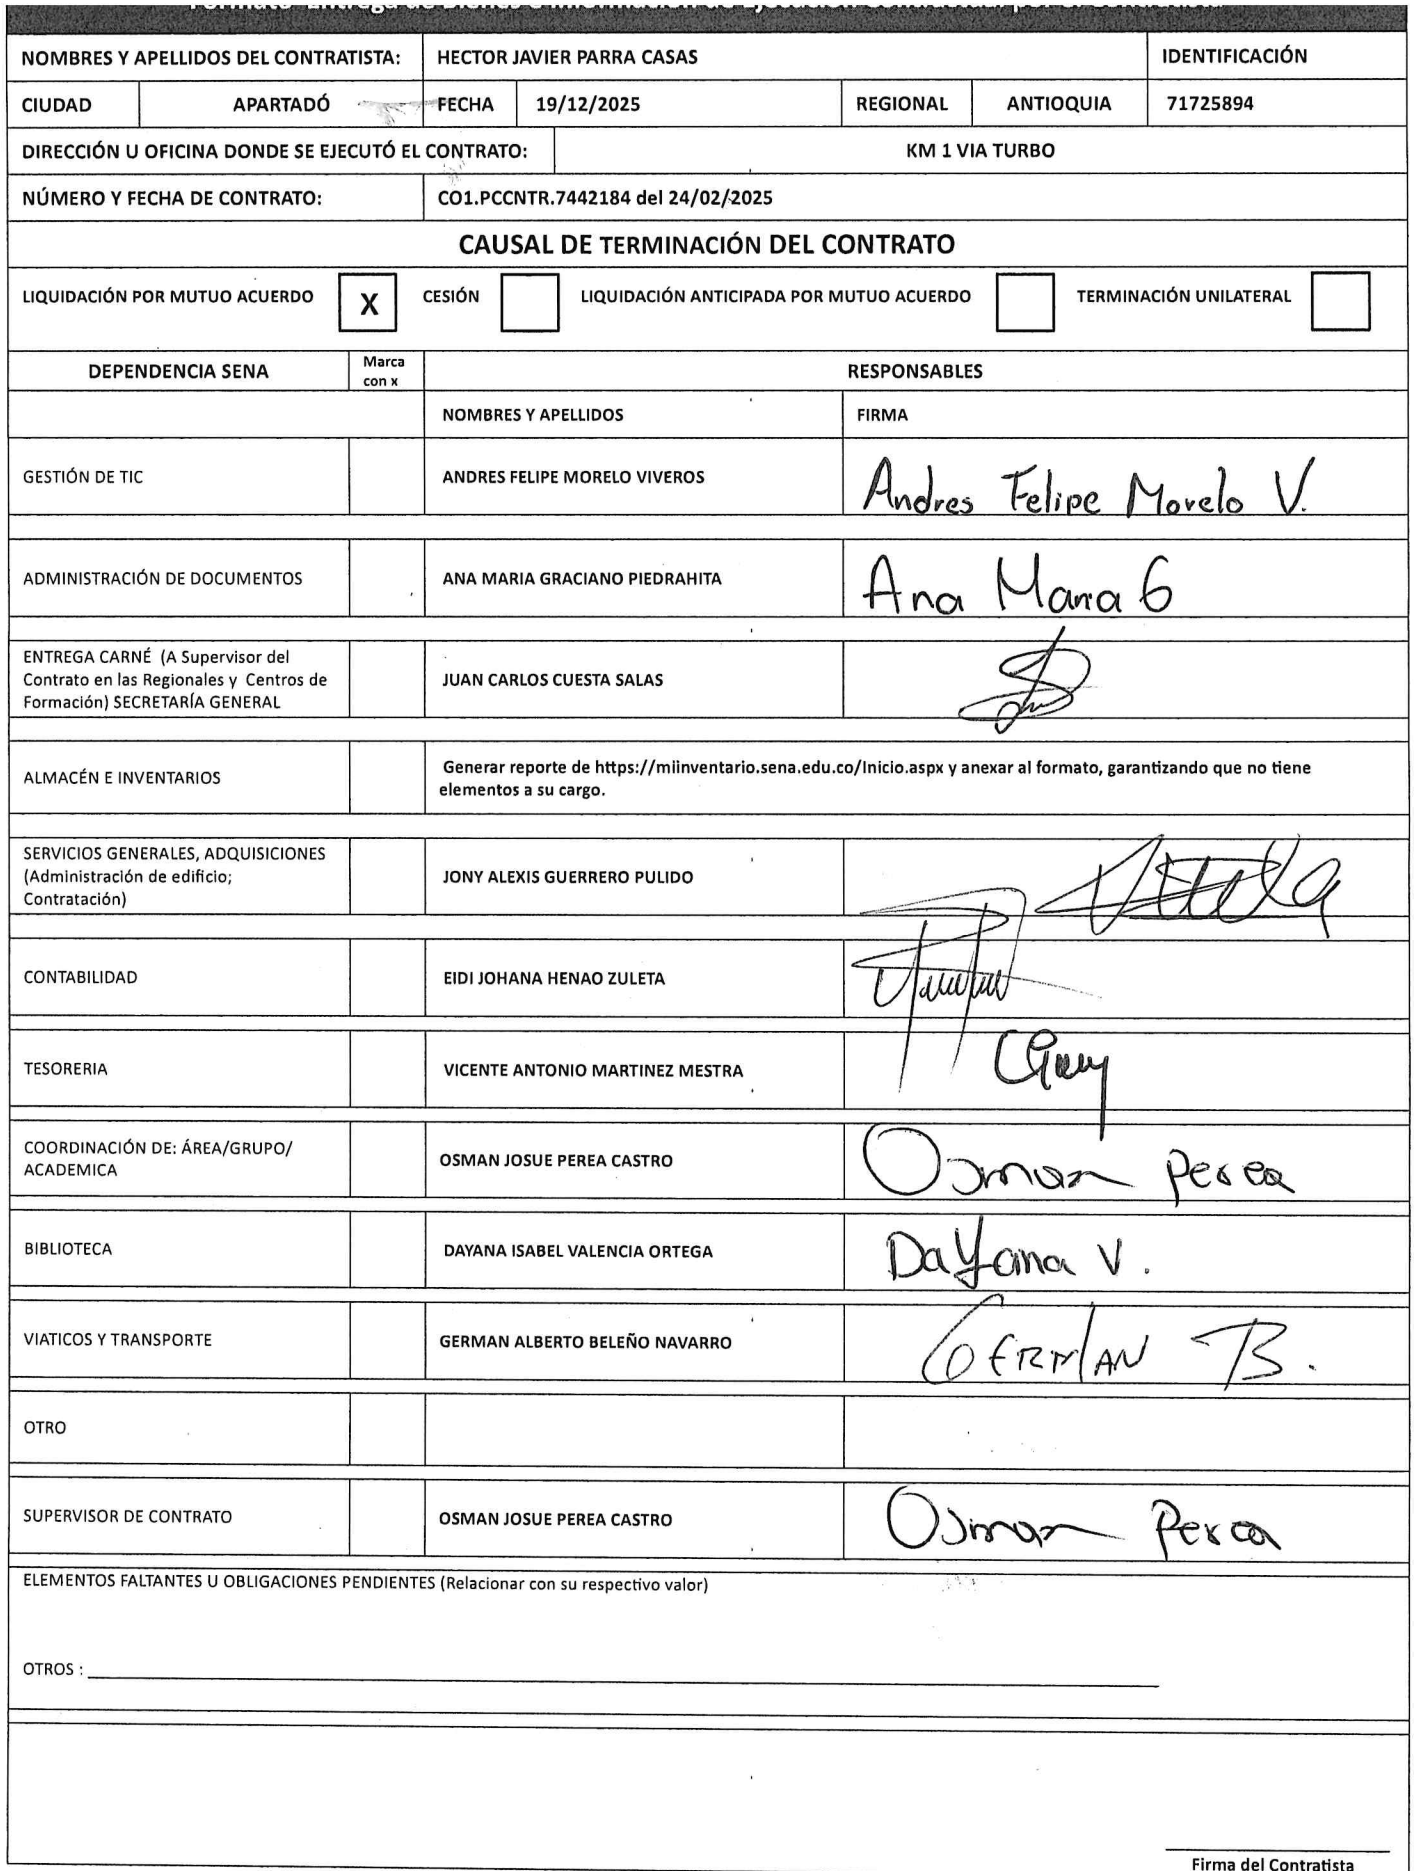 NOMBRES Y APELLIDOS DEL CONTRATISTA: HECTOR JAVIER PARRA CASAS IDENTIFICACIÓN
CIUDAD APARTADÓ FECHA 19/12/2025 REGIONAL ANTIOQUIA 71725894
DIRECCIÓN U OFICINA DONDE SE EJECUTÓ EL CONTRATO: KM 1 VIA TURBO
NÚMERO Y FECHA DE CONTRATO: CO1.PCCNTR.7442184 del 24/02/2025
CAUSAL DE TERMINACIÓN DEL CONTRATO
LIQUIDACIÓN POR MUTUO ACUERDO X CESIÓN LIQUIDACIÓN ANTICIPADA POR MUTUO ACUERDO TERMINACIÓN UNILATERAL
DEPENDENCIA SENA Marca con x RESPONSABLES
NOMBRES Y APELLIDOS FIRMA
GESTIÓN DE TIC ANDRES FELIPE MORELO VIVEROS Andres Felipe Morelo V.
ADMINISTRACIÓN DE DOCUMENTOS ANA MARIA GRACIANO PIEDRAHITA Ana Maria G
ENTREGA CARNÉ (A Supervisor del
Contrato en las Regionales y Centros de
Formación) SECRETARÍA GENERAL
JUAN CARLOS CUESTA SALAS
ALMACÉN E INVENTARIOS
Generar reporte de https://miinventario.sena.edu.co/Inicio.aspx y anexar al formato, garantizando que no tiene
elementos a su cargo.
SERVICIOS GENERALES, ADQUISICIONES
(Administración de edificio;
Contratación)
JONY ALEXIS GUERRERO PULIDO
CONTABILIDAD EIDI JOHANA HENAO ZULETA
TESORERIA VICENTE ANTONIO MARTINEZ MESTRA
COORDINACIÓN DE: ÁREA/GRUPO/
ACADEMICA
OSMAN JOSUE PEREA CASTRO Osman Perea
BIBLIOTECA DAYANA ISABEL VALENCIA ORTEGA Dayana V.
VIATICOS Y TRANSPORTE GERMAN ALBERTO BELEÑO NAVARRO GERMAN B.
OTRO
SUPERVISOR DE CONTRATO OSMAN JOSUE PEREA CASTRO Osman Perea
ELEMENTOS FALTANTES U OBLIGACIONES PENDIENTES (Relacionar con su respectivo valor)
OTROS :
Firma del Contratista